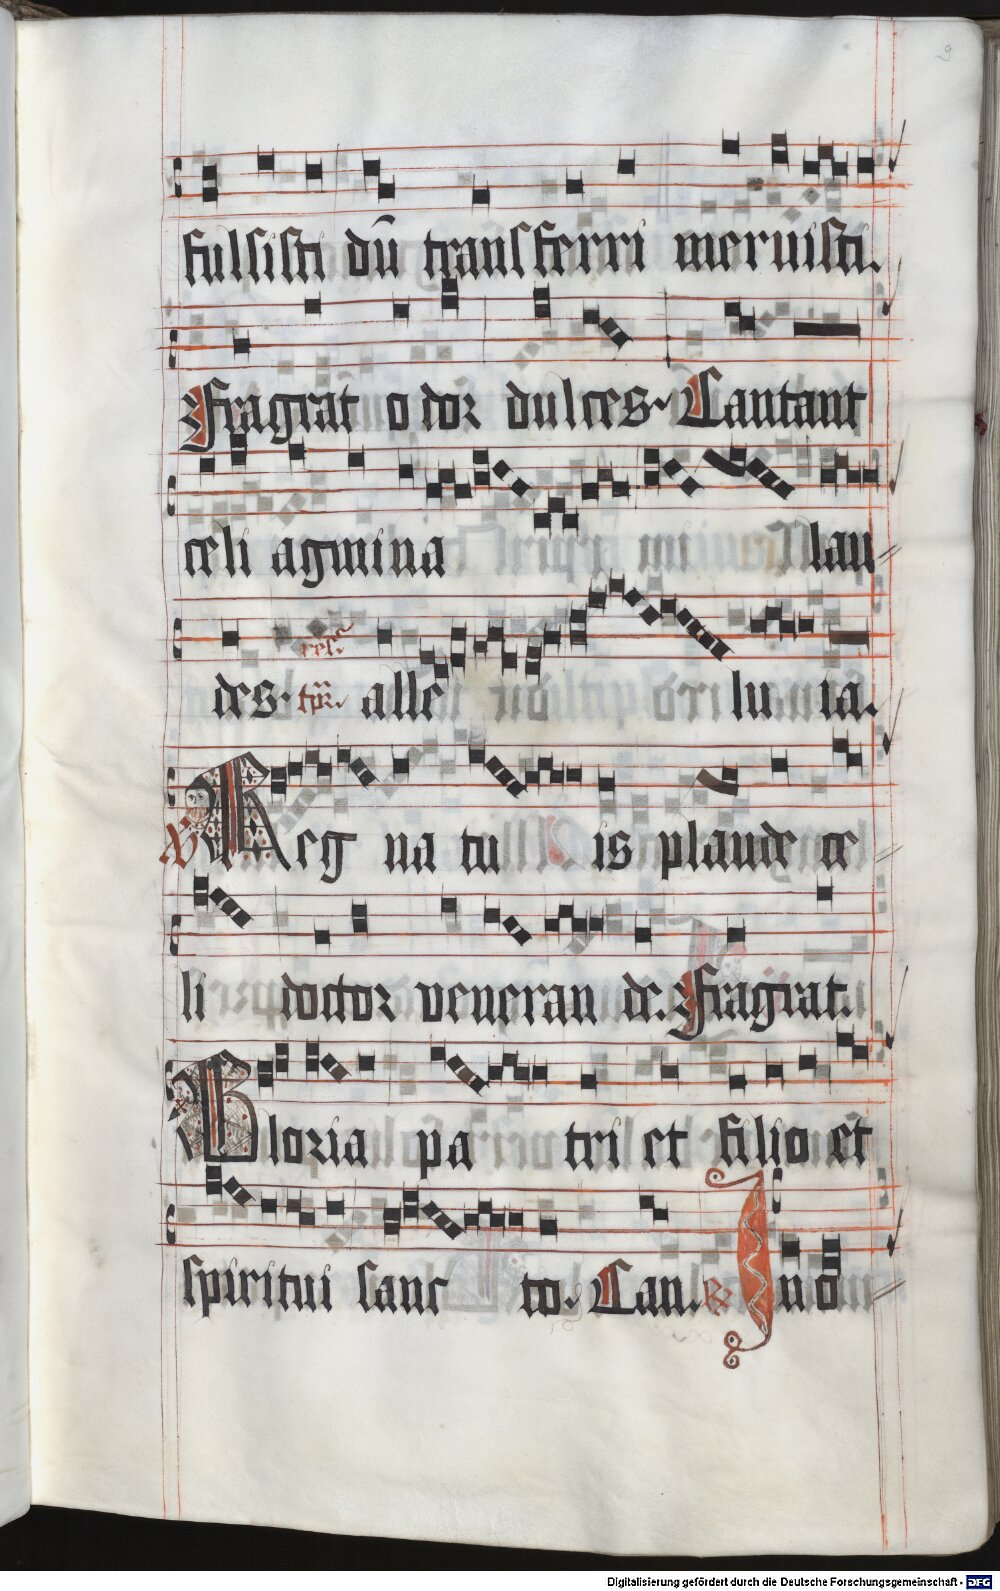 9
fulsisti dū transferri meruisti.
Fragrat odor dulces. Cantant
celi agmina lau
des. tpr. alle lu ia.
Regna tu is plaude ce
li doctor veneran de. Fragrat.
Gloria pa tri et filio et
spiritui sanc to. Can. Ino
Digitalisierung gefördert durch die Deutsche Forschungsgemeinschaft - DFG